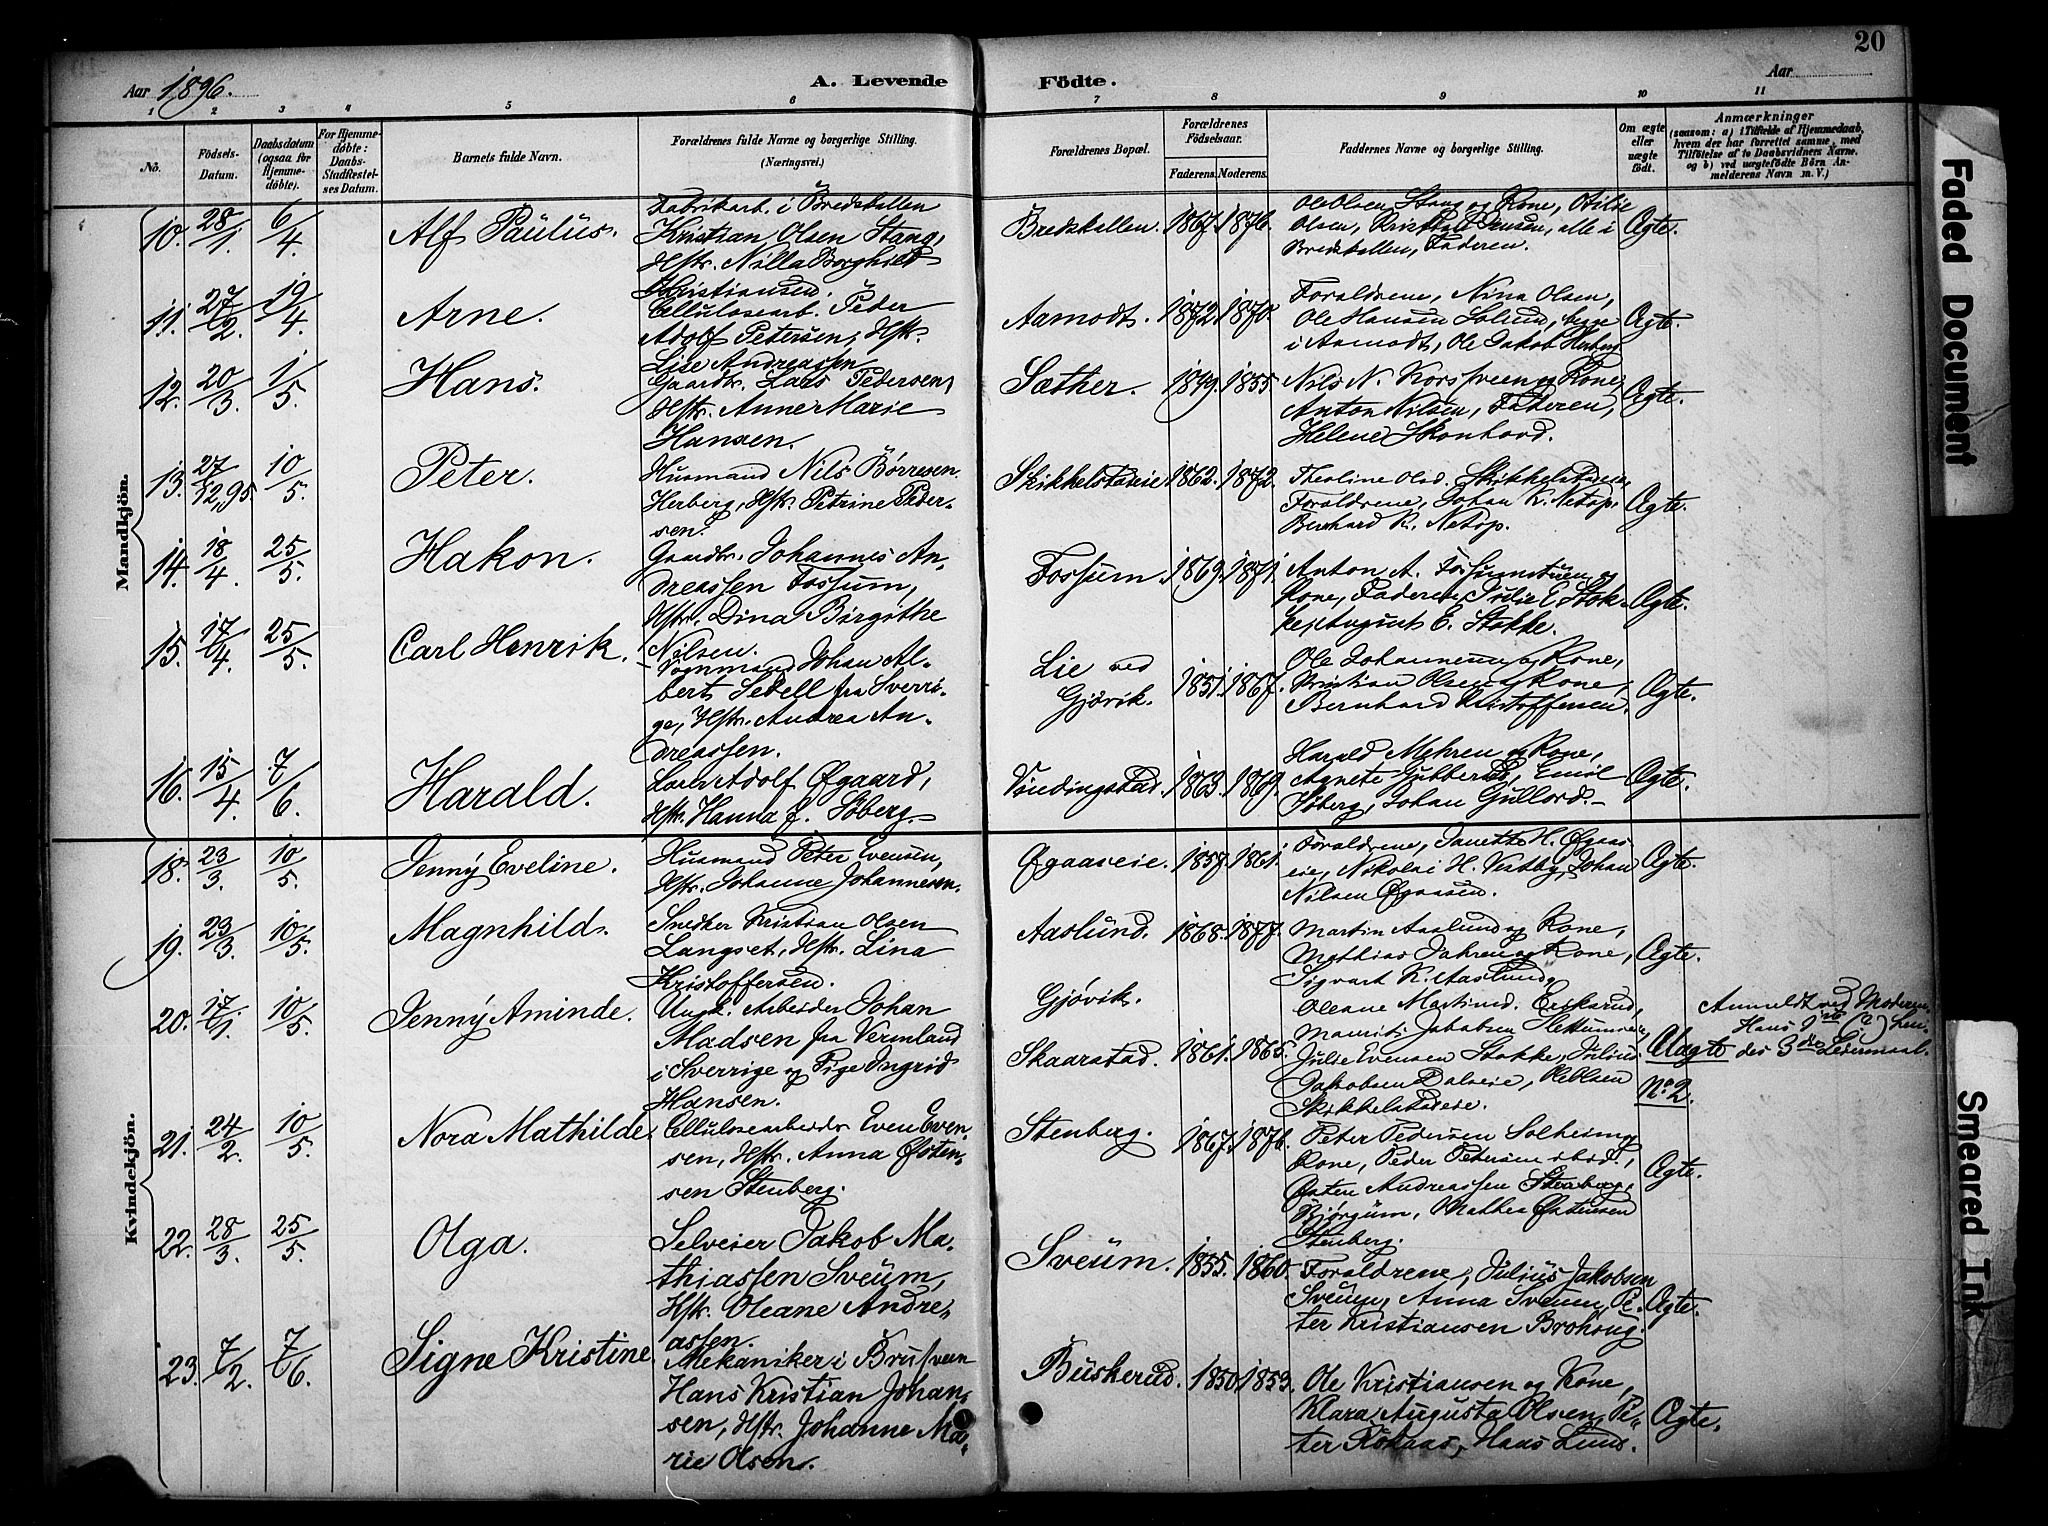 20
Aar 1896. A. Levende Födte. Aar
1 2 3 4 5 6 7 8 9 10 11
No. Födsels-Datum. Daabsdatum (ogsaa for Hjemmedöbte). For Hjemmedöbte: Daabs-Stadfæstelses Datum. Barnets fulde Navn. Forældrenes fulde Navne og borgerlige Stilling. (Næringsvei.) Forældrenes Bopæl. Forældrenes Födselsaar. Faderens. Moderens. Faddernes Navne og borgerlige Stilling. Om ægte eller uægte födt. Anmærkninger (saasom: a) i Tilfælde af Hjemmedaab, hvem der har forrettet samme, med Tilföielse af to Daabsvidners Navne. og b) ved uægtefödte Börn Anmelderens Navn m. V.)
Mandkjön.
10. 28/1 6/4 Alf Paulus. Fabrikarb. i Bredskallen
Kristian Olsen Stang,
Hstr. Nilla Borghild
Kristiansen.
Bredskallen. 1867. 1876. Ole Olsen Stang og Kone, Otilie
Olsen, Jensen, alle i
Bredskallen, Faderen. Ægte.
11. 27/2 19/4 Arne. Cellulosearb. Peder
Adolf Petersen, Hstr.
Lise Andreassen
Aamodt. 1872. 1870. Foraldrene, Nina Olsen,
Ole Hansen Solund, begge
i Aamodt, Ole Jakob Herberg Ægte.
12. 20/3 1/5 Hans. Gaardbr. Lars Pedersen,
Hstr. Anne Marie
Hansen.
Sæther. 1849. 1855. Nils N. Korsveen og Kone,
Anton Nilsen, Faderen,
Helene Skonhovd. Ægte.
13. 27/12,95 10/5 Peter. Husmand Nils Børresen
Herberg, Hstr. Petrine Peder-
sen.
Skikkelstadeie 1862. 1872. Theoline Olsd. Skikkelstadeie
Foraldrene, Johan K. Netop,
Bernhard K. Netop. Ægte.
14. 18/4 25/5 Hakon. Gaardbr. Johannes An-
dreassen Fossum,
Hstr. Dina Birgithe
Nilsen.
Fossum. 1869. 1871. Anton A. Fossumstuen og
Kone, Faderen, Julie E. Stok-
ke, August E. Stokke. Ægte.
15. 17/4 25/5 Carl Henrik. Vognmand Johan Al-
bert Sedell fra Sverri-
ge, Hstr. Andrea An-
dreassen.
Lie ved
Gjøvik. 1851. 1867. Ole Johannesen og Kone,
Kristian Olsen og Kone,
Bernhard Kristoffersen. Ægte.
16. 15/4 7/6 Harald. Carl Adolf Øgaard,
Hstr. Hanna f. Søberg.
Vindingstad. 1863. 1869. Harald Mehren og Kone,
Agnete Gubberud, Emil
Søberg, Johan Gullord. Ægte.
Kvindekjön.
18. 23/3 10/5 Jenny Eveline. Husmand Peter Evensen,
Hstr. Johanne Johannesen.
Øgaaseie. 1857. 1861. Foraldrene, Janette H. Øgaas
eie, Nikolai H. Vestby, Johan
Nilsen Øgaasen. Ægte.
19. 23/3 10/5 Magnhild. Snedker Kristian Olsen
Langset, Hstr. Lina
Kristoffersen.
Aaslund. 1868. 1877. Martin Aaslund og Kone,
Mathias Jahren og Kone,
Sigvart K. Aaslund. Ægte.
20. 17/1 10/5 Jenny Aminde. Ungk. Arbeider Johan
Madsen fra Vermland
i Sverrige og Pige Ingrid
Hansen.
Gjøvik.
Skaarstad. 1861. 1865. Oleane Martinsd. Eriksrud,
Maurits Jakobsen
Julie Evensen Stokke, Julius
Jakobsen Dalseie,
Skikkelstadeie. Uægte
No 2. Anmeldt ved Moderen.
Hans 1ste (?)
des 3die Leiermaal.
21. 24/2 10/5 Nora Mathilde. Cellulosearbeider Even Even-
sen, Hstr. Anna Østen-
sen Stenberg.
Stenberg. 1867. 1876. Peter Pedersen Solheim og
Kone, Peder Petersen ibid.,
Østen Andreassen Stenberg,
Bjørgum, Mathea Østensen
Stenberg. Ægte.
22. 28/3 25/5 Olga. Selveier Jakob Ma-
thiassen Sveum,
Hstr. Oleane Andre-
assen.
Sveum. 1855. 1860. Foraldrene, Julius Jakobsen
Sveum, Anna Sveum, Pe-
ter Kristiansen Brohoug. Ægte.
23. 7/2 7/6 Signe Kristine. Mekaniker i Brufveen
Hans Kristian Johan-
sen, Hstr. Johanne Ma-
rie Olsen.
Buskerud. 1850. 1853. Ole Kristiansen og Kone,
Klara Augusta Olsen, Pe-
ter Hans Lund. Ægte.
Faded Document
Smeared Ink